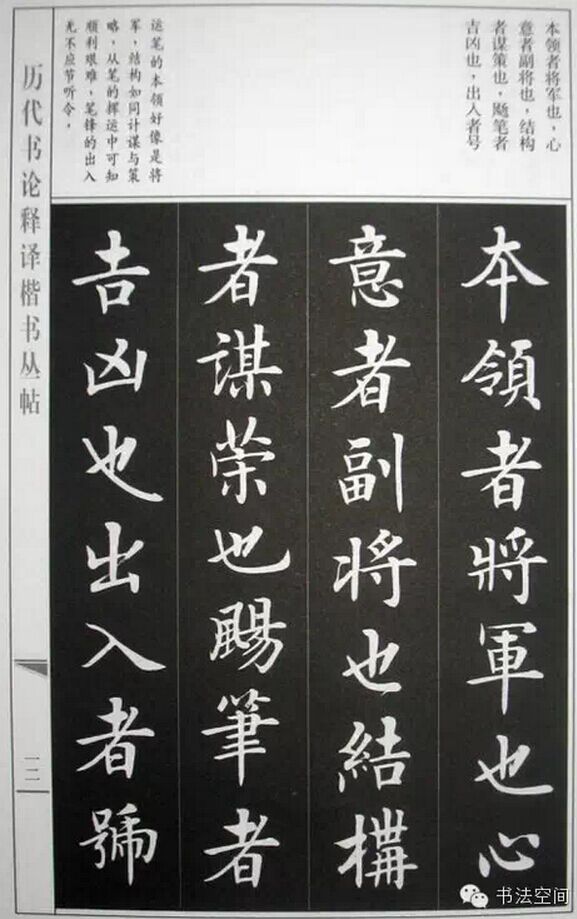 本领者将军也，心
意者副将也，结构
者谋策也，飏笔者
吉凶也，出入者号
运笔的本领好像是将
军，结构如同计谋与策
略，从笔的挥运中可知
顺利艰难，笔锋的出入
无不应节听令。
本領者將軍也心
意者副将也結構
者謀策也颺筆者
吉凶也出入者號
历代书论释译楷书丛帖
书法空间